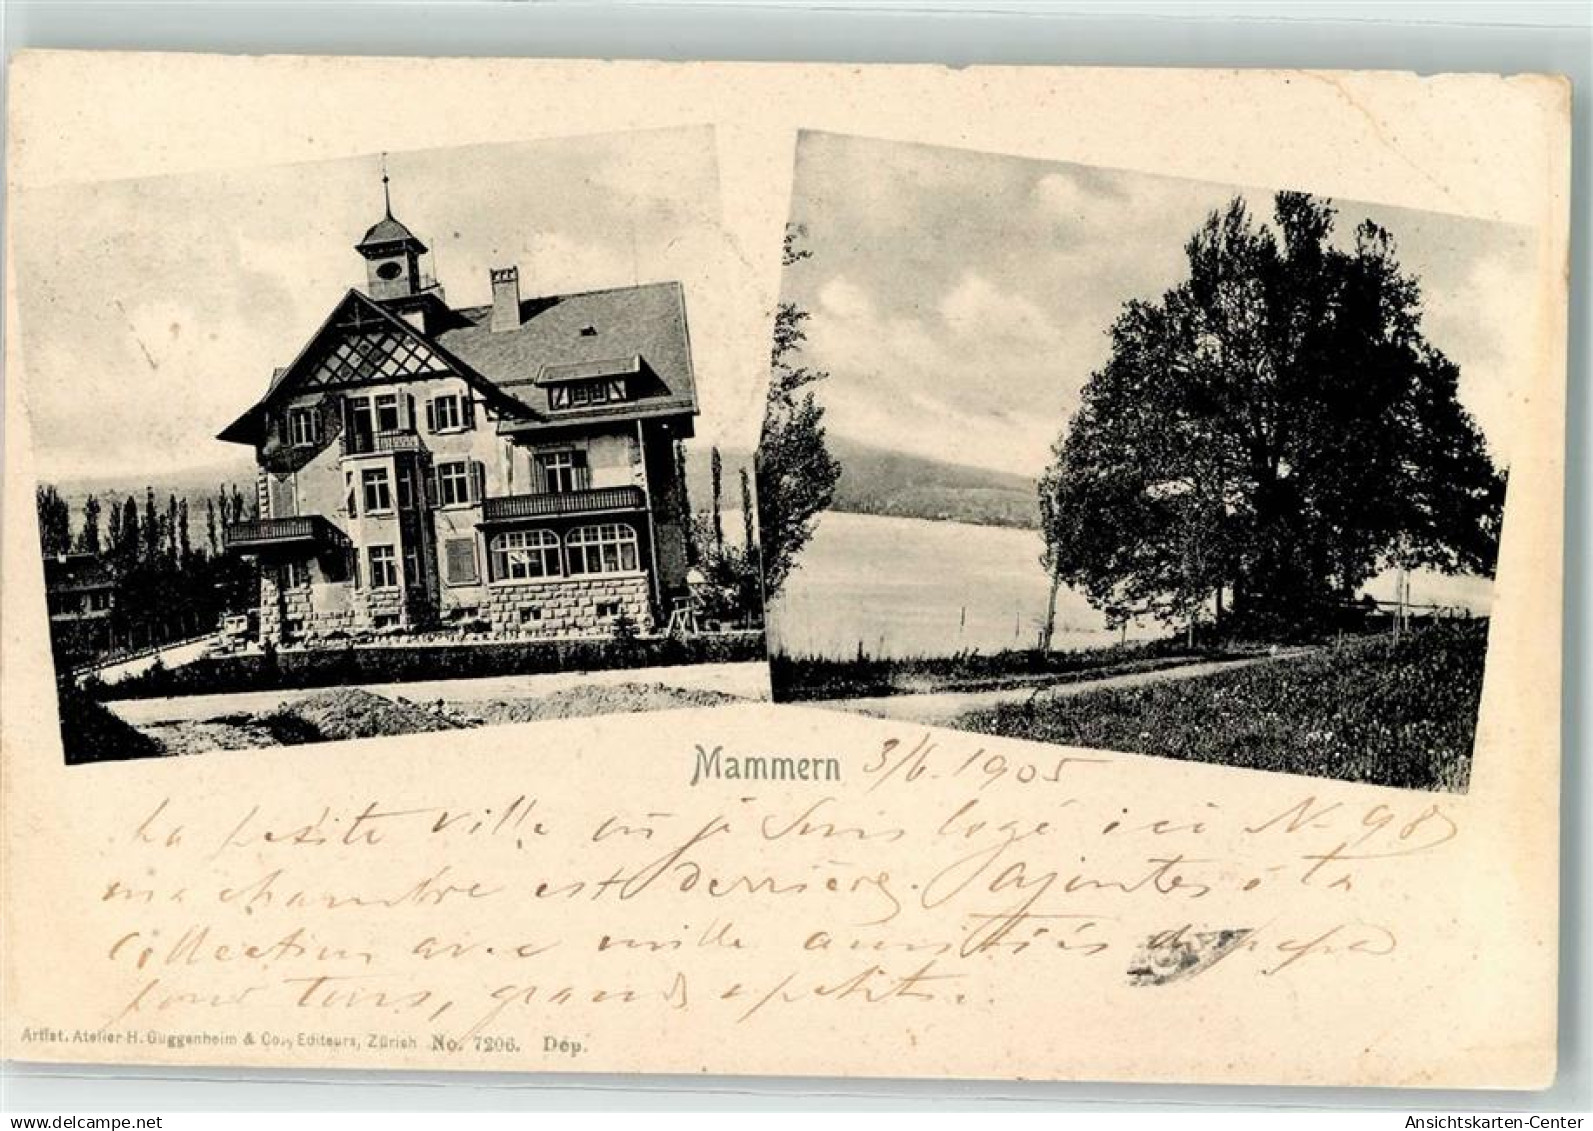 Mammern 3/6. 1905
La petite ville où je suis logé ici N. 98
ma chambre est derrière. ajoutes à ta
collection avec mille amitiés de papa
pour tous, grands & petits.
Artist. Atelier H. Guggenheim & Co., Editeurs, Zürich No. 7206. Dép.
delcampe.net
Ansichtskarten-Center